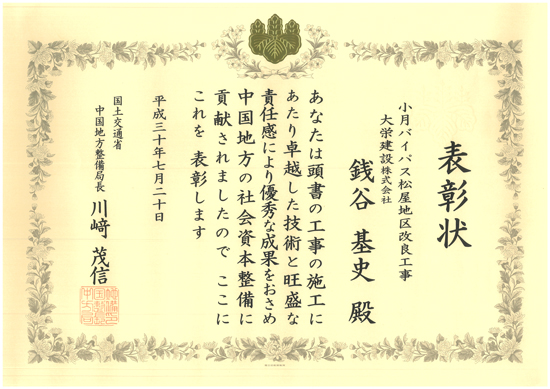 表彰状
小月バイパス松屋地区改良工事
大栄建設株式会社
銭谷 基史 殿
あなたは頭書の工事の施工に
あたり卓越した技術と旺盛な
責任感により優秀な成果をおさめ
中国地方の社会資本整備に
貢献されましたので ここに
これを 表彰します
平成三十年七月二十日
国土交通省
中国地方整備局長 川﨑 茂信